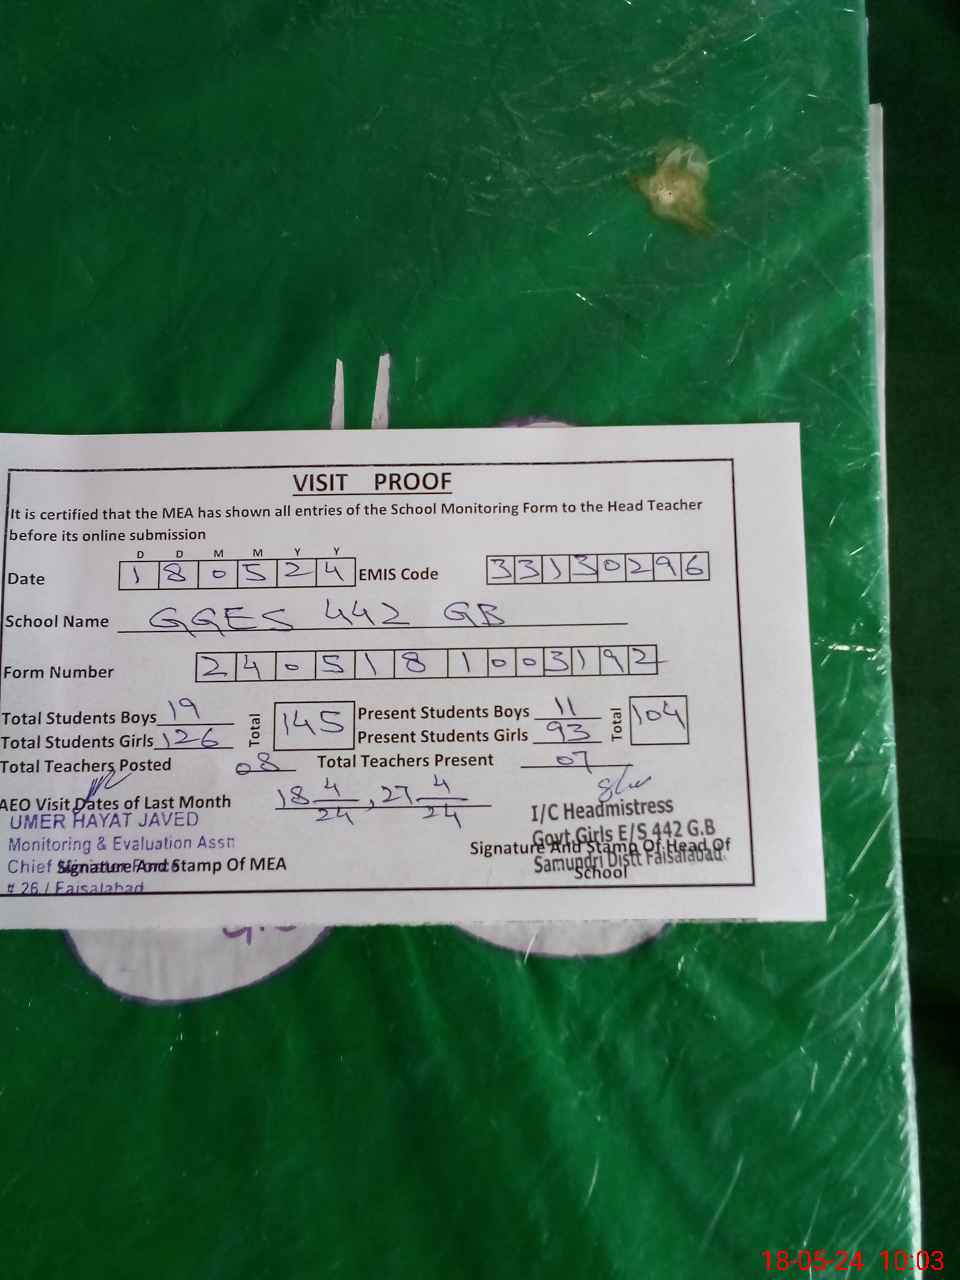 VISIT PROOF
It is certified that the MEA has shown all entries of the School Monitoring Form to the Head Teacher
before its online submission
D D M M Y Y
Date 1 8 0 5 2 4 EMIS Code 3 3 1 3 0 2 9 6
School Name GGES 442 GB
Form Number 2 4 0 5 1 8 1 0 0 3 1 9 2
Total Students Boys 19 Total 145 Present Students Boys 11 Total 104
Total Students Girls 126 Present Students Girls 93
Total Teachers Posted 08 Total Teachers Present 07
AEO Visit Dates of Last Month 18 4/24, 27 4/24
UMER HAYAT JAVED
Monitoring & Evaluation Asst
Chief
Signature And Stamp Of MEA
# 26 / Faisalabad
I/C Headmistress
Govt.Girls E/S 442 G.B
Signature And Stamp Of Head Of
Samundri Distt Faisalabad.
School
18-05-24 10:03